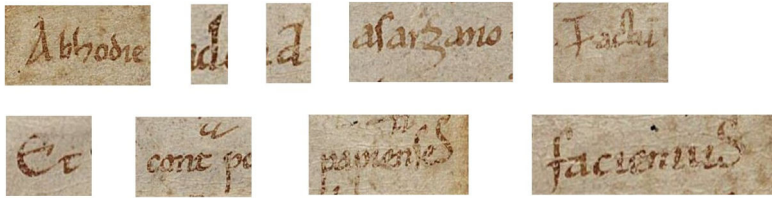 Abhodie d d asarzano Factu
Et cont pa papienses faciemus